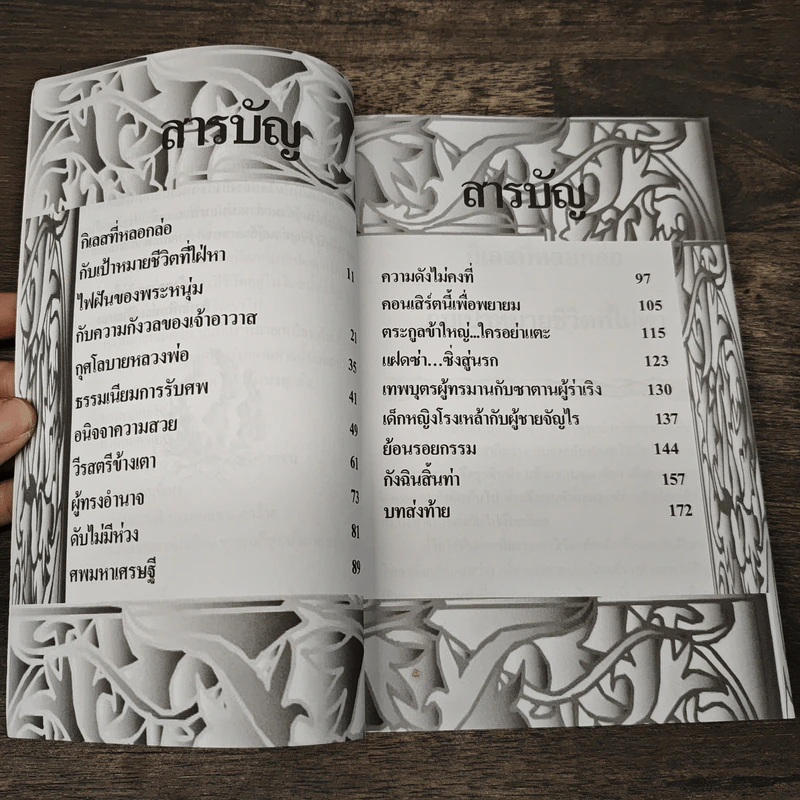 สารบัญ
กิเลสที่หลอกล่อ
กับเป้าหมายชีวิตที่ใฝ่หา 11
ไฟฝันของพระหนุ่ม
กับความกังวลของเจ้าอาวาส 21
กุศโลบายหลวงพ่อ 35
ธรรมเนียมการรับศพ 41
อนิจจาความสวย 49
วีรสตรีข้างเตา 61
ผู้ทรงอำนาจ 73
ดับไม่มีห่วง 81
ศพมหาเศรษฐี 89
สารบัญ
ความดังไม่คงที่ 97
คอนเสิร์ตนี้เพื่อพยายม 105
ตระกูลข้าใหญ่...ใครอย่าแตะ 115
แฝดซ่า...ซิ่งสู่นรก 123
เทพบุตรผู้ทรมานกับซาตานผู้ร่าเริง 130
เด็กหญิงโรงเหล้ากับผู้ชายจัญไร 137
ย้อนรอยกรรม 144
กังฉินสิ้นท่า 157
บทส่งท้าย 172